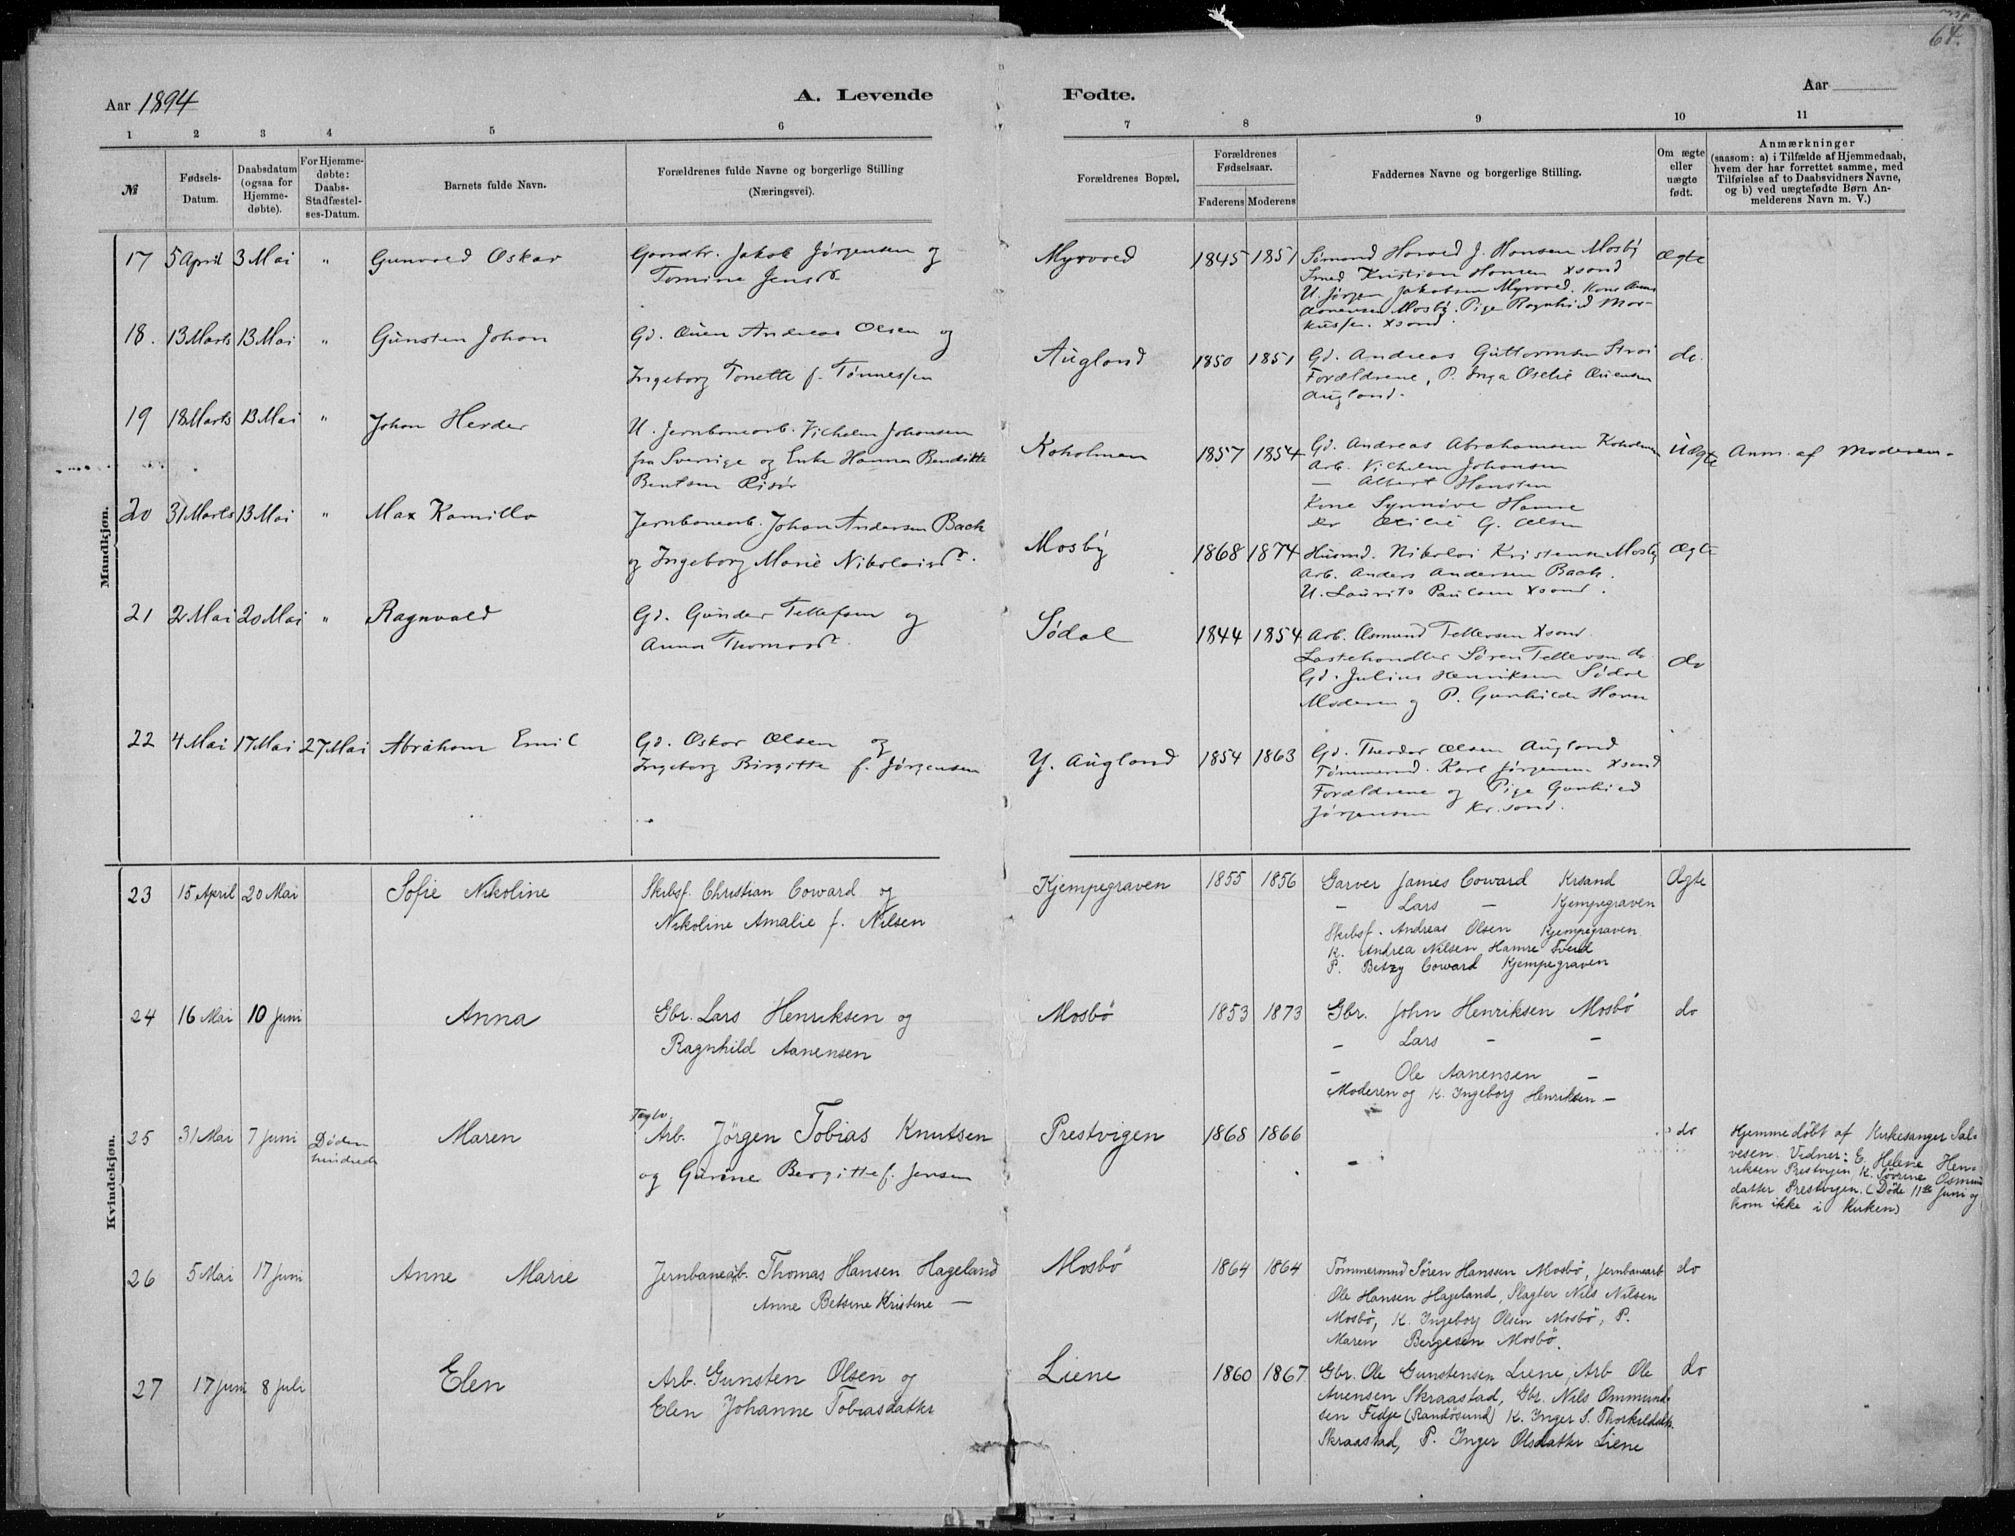 64.
Aar 1894
A. Levende
Fødte.
Aar
1 2 3 4 5 6 7 8 9 10 11
№
Fødsels-
Datum.
Daabsdatum
(ogsaa for
Hjemme-
døbte).
For Hjemme-
døbte:
Daabs-
Stadfæstel-
ses-Datum.
Barnets fulde Navn.
Forældrenes fulde Navne og borgerlige Stilling
(Næringsvei).
Forældrenes Bopæl.
Forældrenes
Fødselsaar.
Faderens Moderens
Faddernes Navne og borgerlige Stilling.
Om ægte
eller
uægte
født.
Anmærkninger
(saasom: a) i Tilfælde af Hjemmedaab,
hvem der har forrettet samme, med
Tilføielse af to Daabsvidners Navne,
og b) ved uægtefødte Børn An-
melderens Navn m. V.)
Mandkjøn.
17 5 April 3 Mai " Gunvald Oskar
Gaardbr. Jakob Jørgensen og
Tomine Jensd.
Myrvold 1845 1851
Smed Kristian Hansen Xsand
U. Jørgen Jakobsen Myrvold. Kone
Mosby. Pige Ragnhild Mar-
kussen. Xsand.
Ægte
18. 13 Marts 13 Mai " Gunsten Johan
Gd. Ouen Andreas Olsen og
Ingeborg Tonette f. Tønnessen
Augland 1850 1851
Gd. Andreas Guttormsen Strai
Forældrene, P. Inga Oselie Ouensen
Augland.
do.
19 18 Marts 13 Mai " Johan Herder
U. Jernbanearb. Vilhelm Johansen
fra Sverrige og Enke Hanna Bendikte
Bentsen Risør
Koholmen 1857 1854
Gd. Andreas Abrahamsen Koholmen
Arb. Vilhelm Johansen
— Albert Hansten
Kone Synnøve Hamre
do G. Olsen
Uægte
Anm. af Moderen.
20 31 Marts 13 Mai " Max Kamillo
Jernbanearb. Johan Andersen Bach
og Ingeborg Marie Nikolaisd.
Mosby 1868 1874
Husmd. Nikolai Kristensen Mosby
Arb. Anders Andersen Bach.
U. Laurits Paulsen Xsand.
Ægte
21 2 Mai 20 Mai " Ragnvald
Gd. Gunder Tellefsen og
Anna Thomasd.
Sødal 1844 1854
Arb. Osmund Tellefsen Xsand.
Søren Tellefsen do
Gd. Julius Henriksen Sødal
Moderen og P. Gunhilde Havn
do
22 4 Mai 17 Mai 27 Mai Abraham Emil
Gd. Oskar Olsen og
Ingeborg Birgitte f. Jørgensen
Y. Augland 1854 1863
Gd. Theodor Olsen Augland
Tømmermd. Karl Jørgensen Xsand
Forældrene og Pige Gunhild
Jørgensen Kr.sand.
Kvindekjøn.
23 15 April 20 Mai Sofie Nikoline
Skibsf. Christian Coward og
Nikoline Amalie f. Nilsen
Kjempegraven 1855 1856
Garver James Coward Krsand
— Lars — Kjempegraven
Skibsf. Andreas Olsen Kjempegraven
K. Andrea Nilsen Hamre Tveid
P. Betzy Coward Kjempegraven
Ægte
24 16 Mai 10 Juni Anna
Gbr. Lars Henriksen og
Ragnhild Aanensen
Mosbø 1853 1873
Gbr. John Henriksen Mosbø
— Lars — —
— Ole Aanensen —
Moderen og K. Ingeborg Henriksen —
do
25 31 Mai 7 Juni Døden
hindrede
Maren
Arb. Jörgen Tobias Knutsen
og Gurine Bergitte f. Jensen
Prestvigen 1868 1866
do
Hjemmedöbt af Kirkesanger Sal-
vesen. Vidner: E. Helene Hen-
riksen Prestvigen, K. Sörine Osmun
datter Prestvigen. (Døde 11te Juni og
kom ikke i Kirken)
26 5 Mai 17 Juni Anne Marie
Jernbanearb. Thomas Hansen Hageland
Anne Betsine Kristine —
Mosbø 1864 1864
Tömmermnd Sören Hanssen Mosbø, Jernbanearb
Ole Hansen Hageland, Slagter Nils Nilsen
Mosbø, K. Ingeborg Olsen Mosbø, P.
Maren Bergesen Mosbø.
do
27 17 Juni 8 Juli Elen
Arb. Gunsten Olsen og
Elen Johanne Tobiasdatter
Liene 1860 1867
Gbr. Ole Gunstensen Liene, Arb Ole
Auensen Skraastad, Gbr. Nils Ommund-
sen Fidje (Randösund) K. Inger S. Thorkildsdt.
Skraastad, P. Inger Olsdatter Liene
do